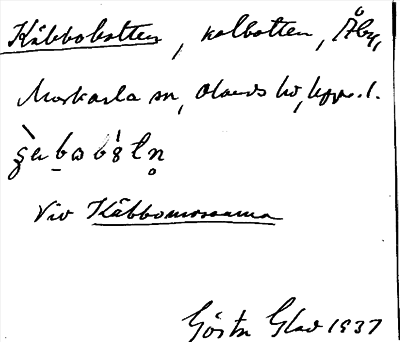 Käbbobotten, kolbotten, Åby,
Morkarla sn, Olands hd, Uppl.
Vid Käbbomossarna
Gösta Glad 1937